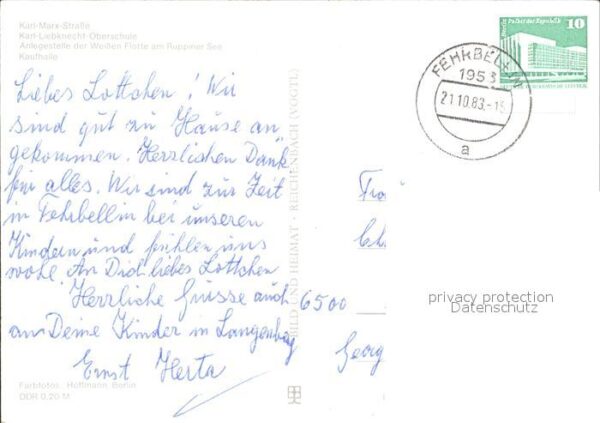 Karl-Marx-Straße
Karl-Liebknecht-Oberschule
Anlegestelle der Weißen Flotte am Ruppiner See
Kaufhalle
Liebes Lottchen! Wir
sind gut zu Hause an
gekommen. Herzlichen Dank
für alles. Wir sind zur Zeit
in Fehrbellin bei unseren
Kindern und fühlen uns
wohl. An Dich liebes Lottchen
Herzliche Grüsse auch
an Deine Kinder in Langenberg
Ernst Herta
Farbfotos: Hoffmann, Berlin
DDR 0,20 M
BILD UND HEIMAT · REICHENBACH (VOGTL)
Berlin Palast der Republik
10
FEHRBELLIN
1953
21.10.83.-15
a
Frau
6500
Georg
privacy protection
Datenschutz